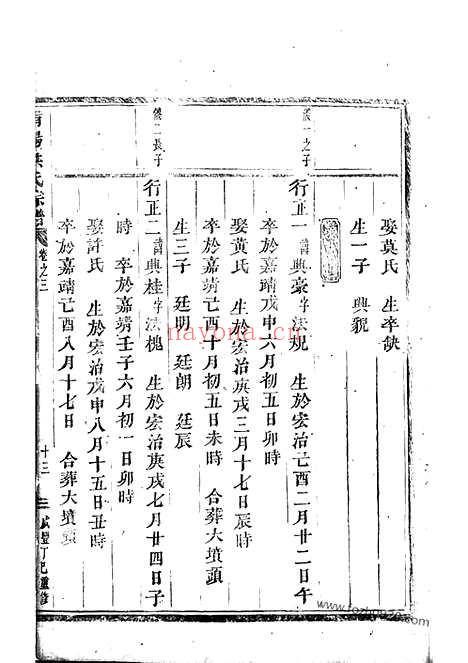 娶莫氏 生卒缺
生一子 興貌
儀一之子
行正一諱興豪字法規 生於宏治己酉二月廿二日午
時 卒於嘉靖戊申六月初五日卯時
娶黃氏 生於宏治庚戌三月十七日辰時
卒於嘉靖己酉十月初五日未時 合葬大墳頭
生三子 廷明 廷朗 廷辰
儀二長子
行正二諱興桂字法槐 生於宏治庚戌七月廿四日子
時 卒於嘉靖壬子六月初一日卯時
娶許氏 生於宏治戊申八月十五日丑時
卒於嘉靖己酉八月十七日 合葬大墳頭
陽洪氏宗譜 卷之三 十三 咸豐丁巳重修
nayona.cn
www.fozhu920.com